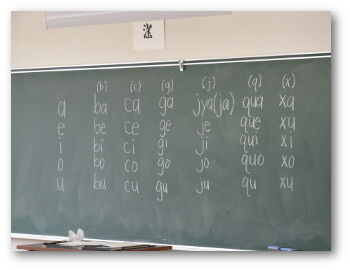 (b) (g) (j) (q) (x)
a ba ca ga jya(ja) qua xa
e be ce ge je que xu
i bi ci gi ji qui xi
o bo co go jo quo xo
u bu cu gu ju qu xu